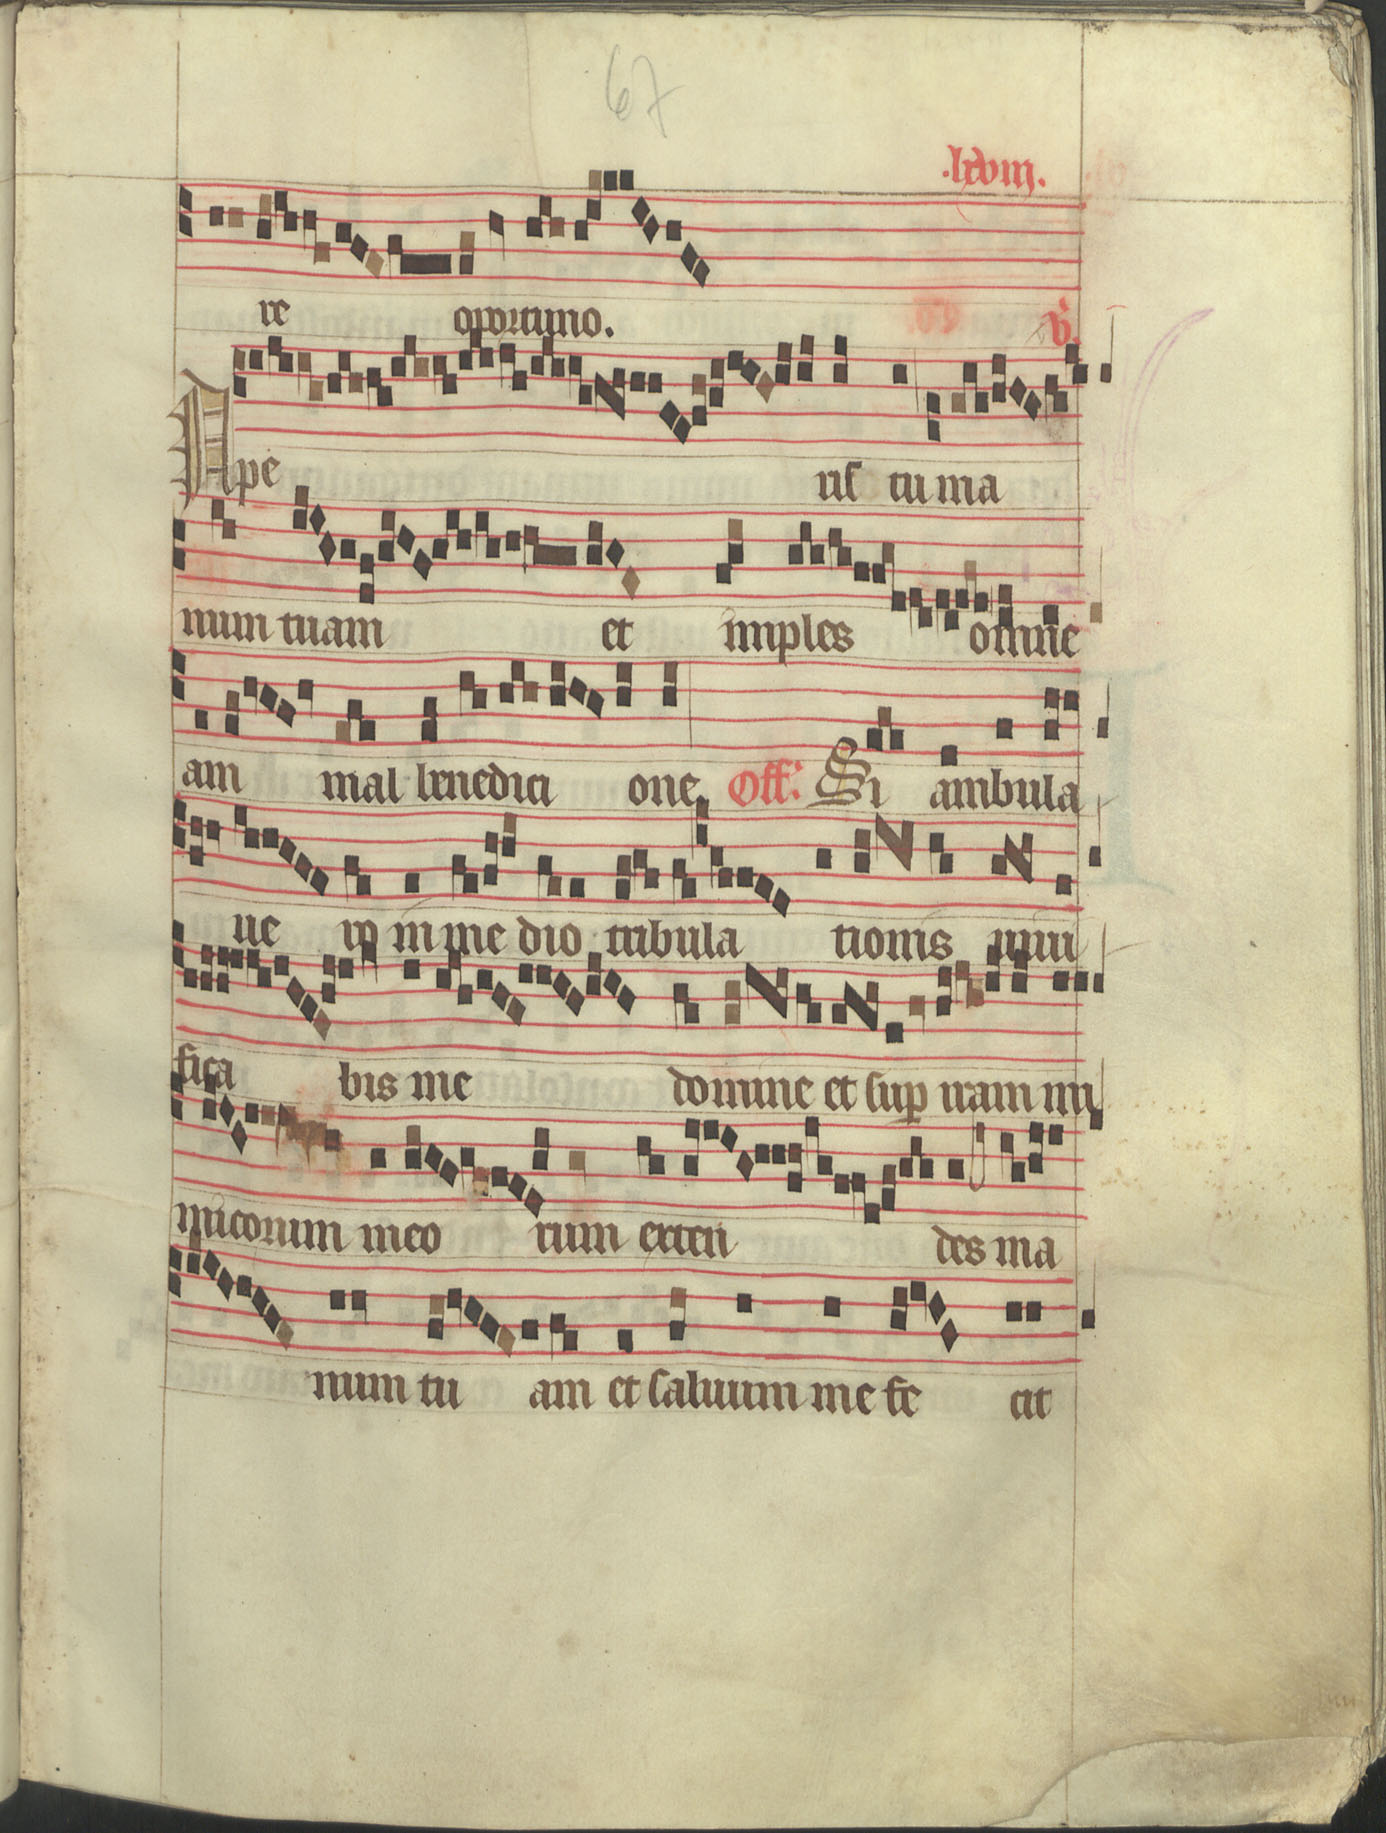 67
.lxviii.
re oportuno. V.
Ape ris tu ma
num tuam et imples omne
am mal benedici one. Off. Si ambula
ue ro in me dio tribula tionis uiui
fica bis me domine et sup iram ini
micorum meo rum exten des ma
num tu am et saluum me fe cit